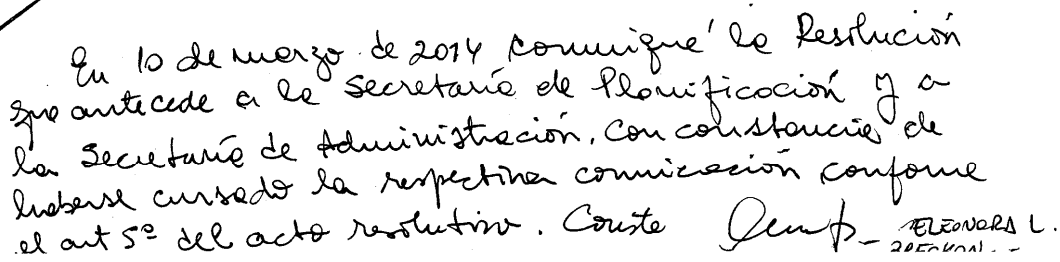 En 10 de marzo de 2014 comuniqué la Resolución
que antecede a la Secretaría de Planificación y a
la Secretaría de Administración, con constancia de
haberse cursado la respectiva comnicación conforme
el art 5º del acto resolutivo. Conste
ELEONORA L.